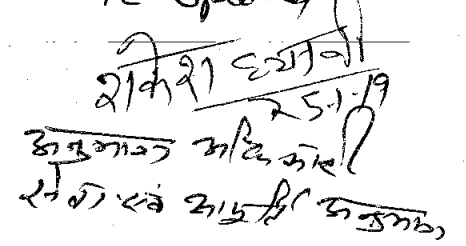 राकेश ध्यानी
25-1-19
अनुभाग अधिकारी
सेवा एवं आपूर्ति अनुभाग